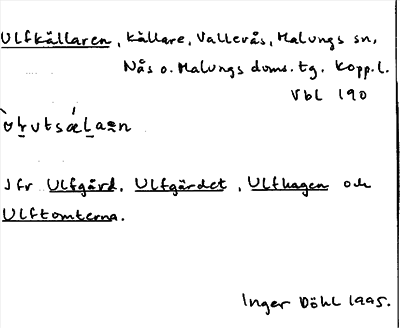 Ulfkällaren, källare, Vallerås, Malungs sn,
Nås o. Malungs doms. tg. Kopp. l.
Vbl 190
Jfr Ulfgärd, Ulfgärdet, Ulfhagen och
Ulftomterna.
Inger Döhl 1995.